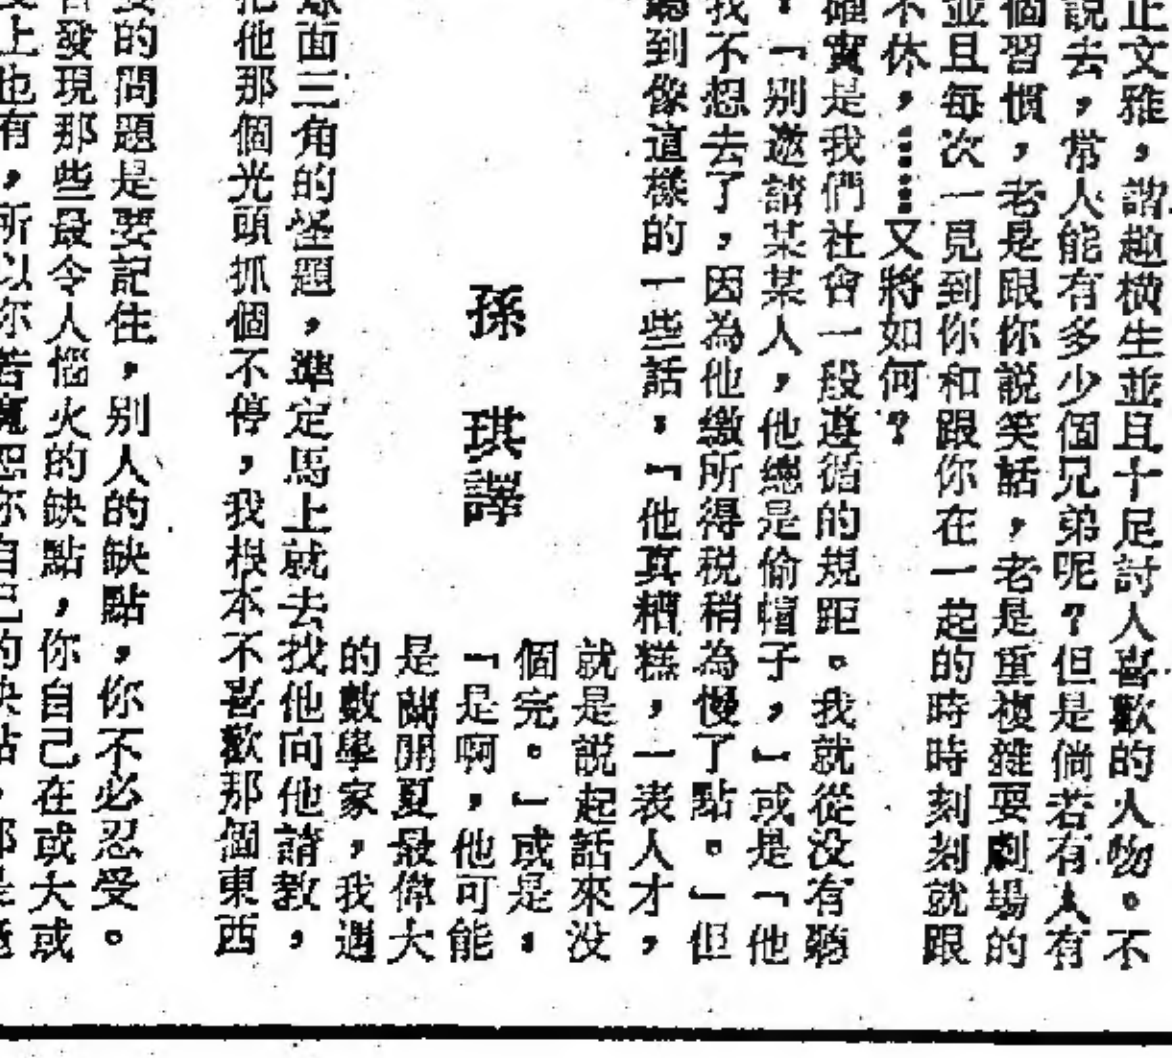 正文雅，諧趣橫生並且十足討人喜歡的人物。不
説去，常人能有多少個兄弟呢？但是倘若有人有
個習慣，老是跟你説笑話，老是重複雜耍劇場的
並且每次一見到你和跟你在一起的時時刻刻就跟
不休，……又將如何？
確實是我們社會一段遵循的規距。我就從没有聽
。「别邀請某某人，他總是偷帽子，」或是「他
我不想去了，因為他繳所得税稍為慢了點。」但
聽到像這樣的一些話：「他真糟糕，一表人才，
就是説起話來没
個完。」或是：
「是啊，他可能
是蘭開夏最偉大
的數學家，我遇
孫琪譯
面三角的怪題，準定馬上就去找他向他請教，
他那個光頭抓個不停，我根本不喜歡那個東西，
的問題是要記住，别人的缺點，你不必忍受。
發現那些最令人惱火的缺點，你自己在或大或
上也有，所以你若寬恕你自己的缺點，那是